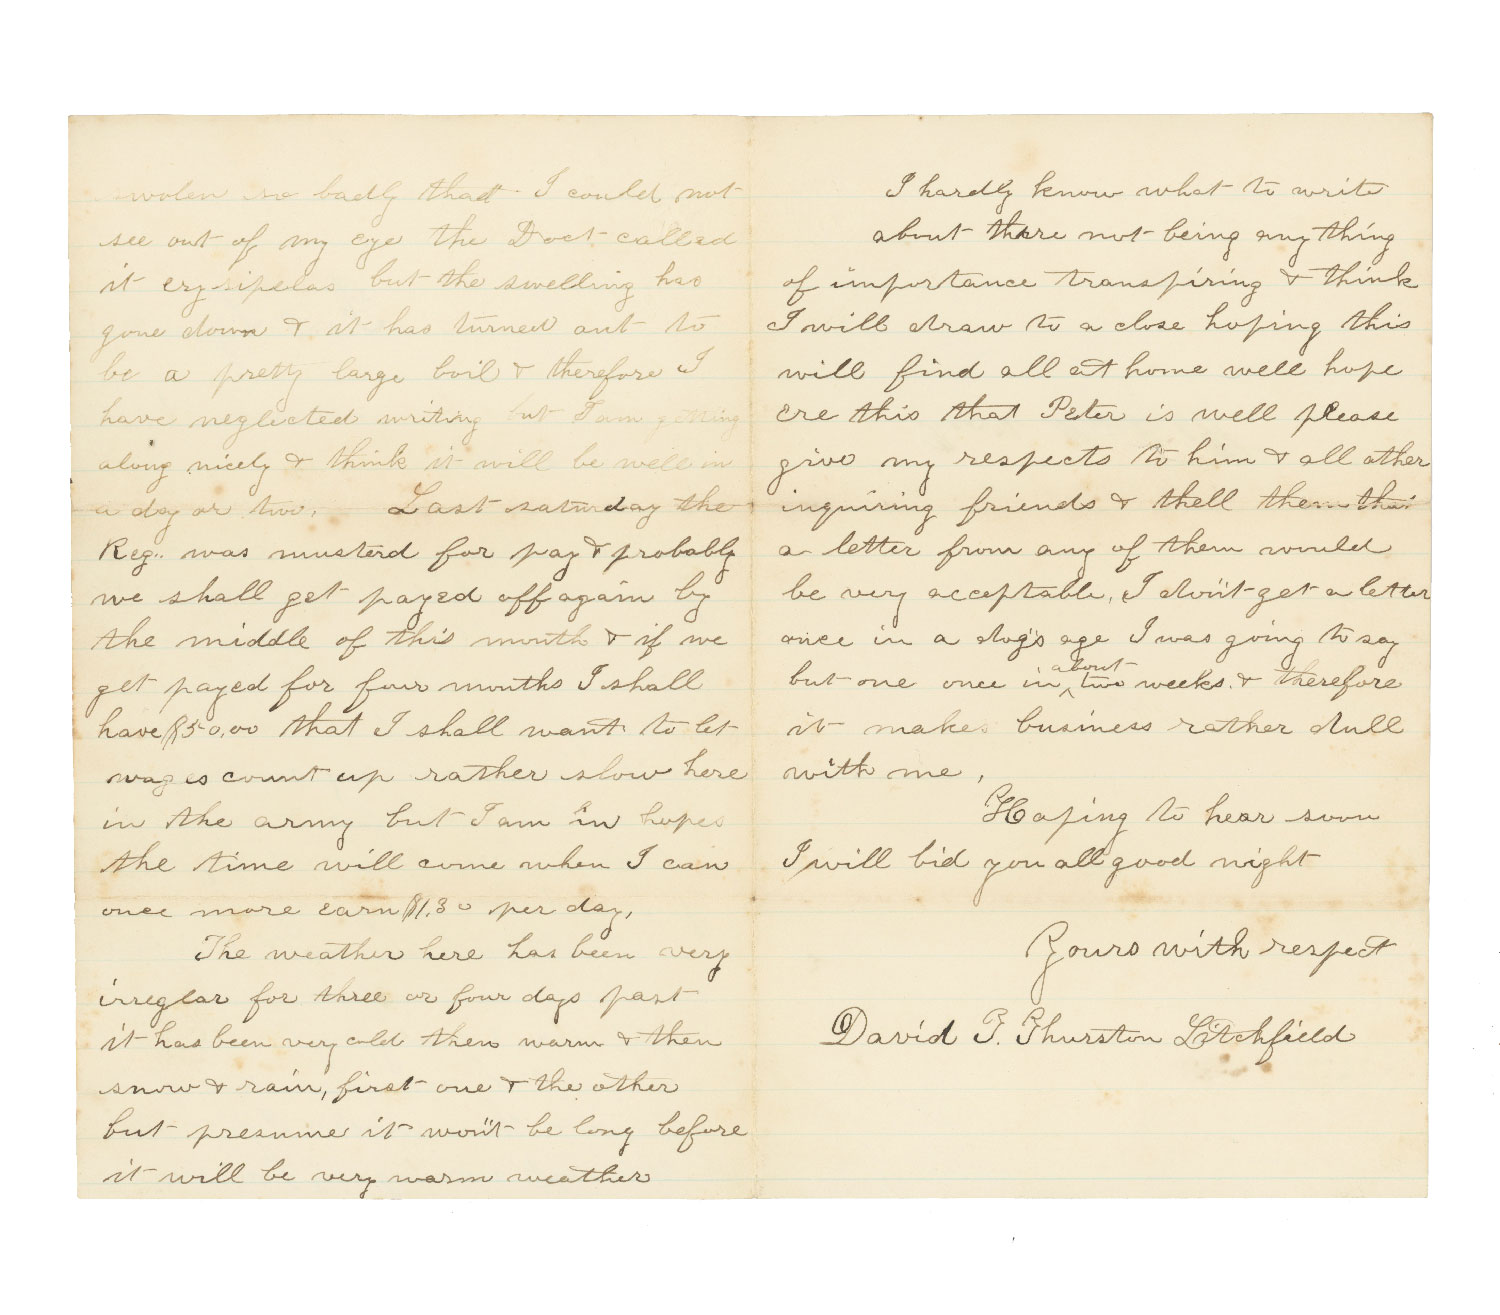 swolen so badly that I could not
see out of my eye the Doct. called
it erysipelas but the swelling has
gone down & it has turned out to
be a pretty large boil & therefore I
have neglected writing but I am getting
along nicely & think it will be well in
a day or two. Last saturday the
Reg.. was musterd for pay & probably
we shall get payed off again by
the middle of this month & if we
get payed for four months I shall
have $50.00 that I shall want to let
wages count up rather slow here
in the army but I am in hopes
the time will come when I can
once more earn $1.30 per day,
The weather here has been very
irreglar for three or four days past
it has been very cold then warm & then
snow & rain, first one & the other
but presume it wont be long before
it will be very warm weather
I hardly know what to write
about there not being any thing
of importance transpiring & think
I will draw to a close hoping this
will find all at home well hope
ere this that Peter is well please
give my respects to him & all other
inquiring friends & thell them that
a letter from any of them would
be very acceptable, I don't get a letter
once in a dog's age I was going to say
but one once in about two weeks. & therefore
it makes business rather dull
with me,
Hoping to hear soon
I will bid you all good night
Yours with respect
David T. Thurston Litchfield